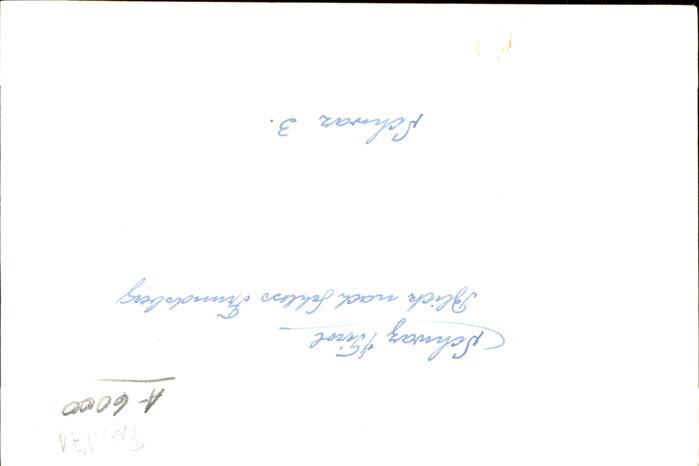 A-6000
Schwaz/Tirol
Blick nach Schloss Frundsberg
Schwaz 3.